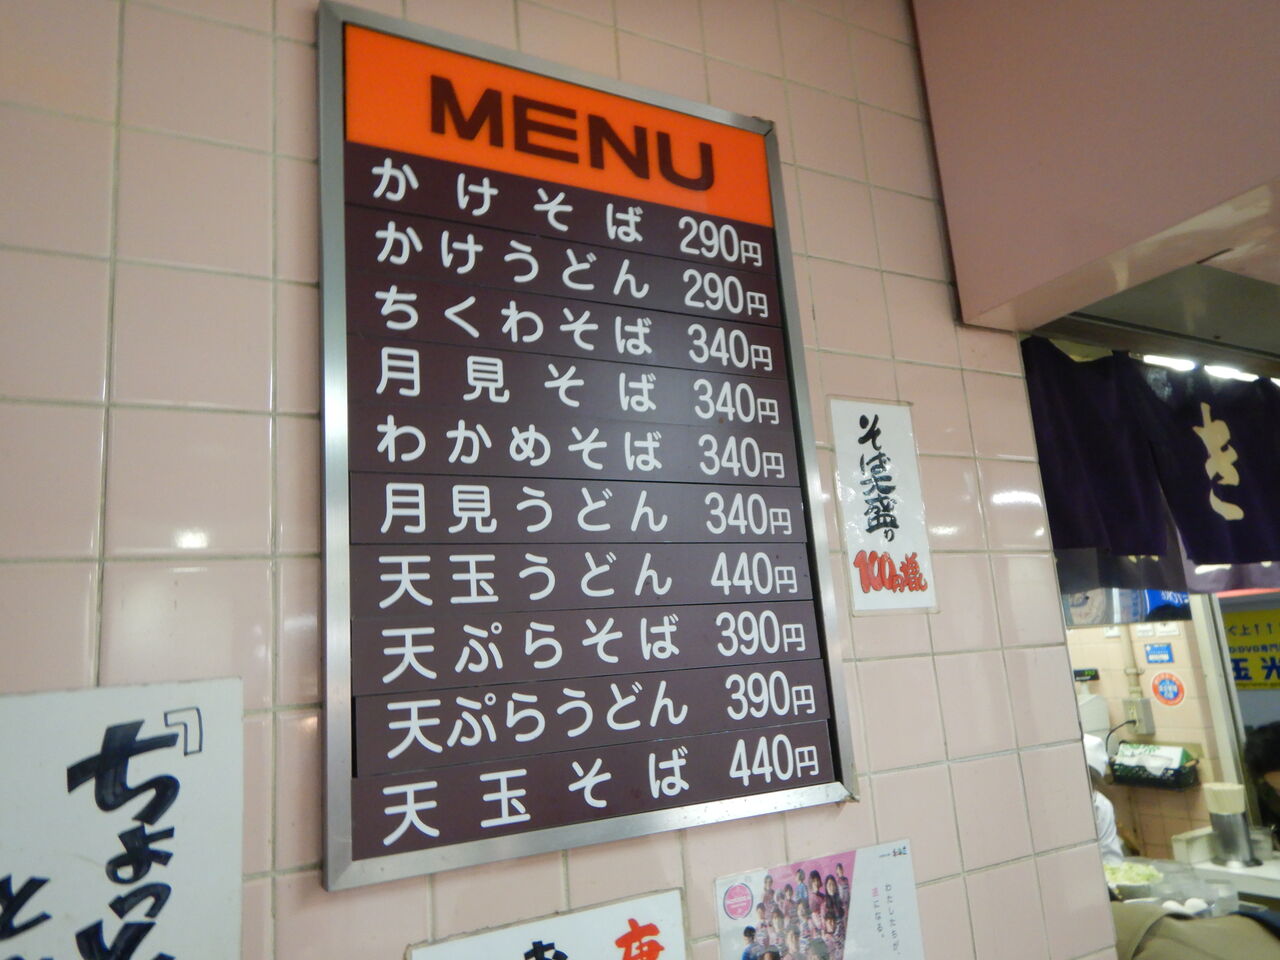 MENU
かけそば 290円
かけうどん 290円
ちくわそば 340円
月見そば 340円
わかめそば 340円
月見うどん 340円
天玉うどん 440円
天ぷらそば 390円
天ぷらうどん 390円
天玉そば 440円
そば大盛り
100円増
き
『ちょっと